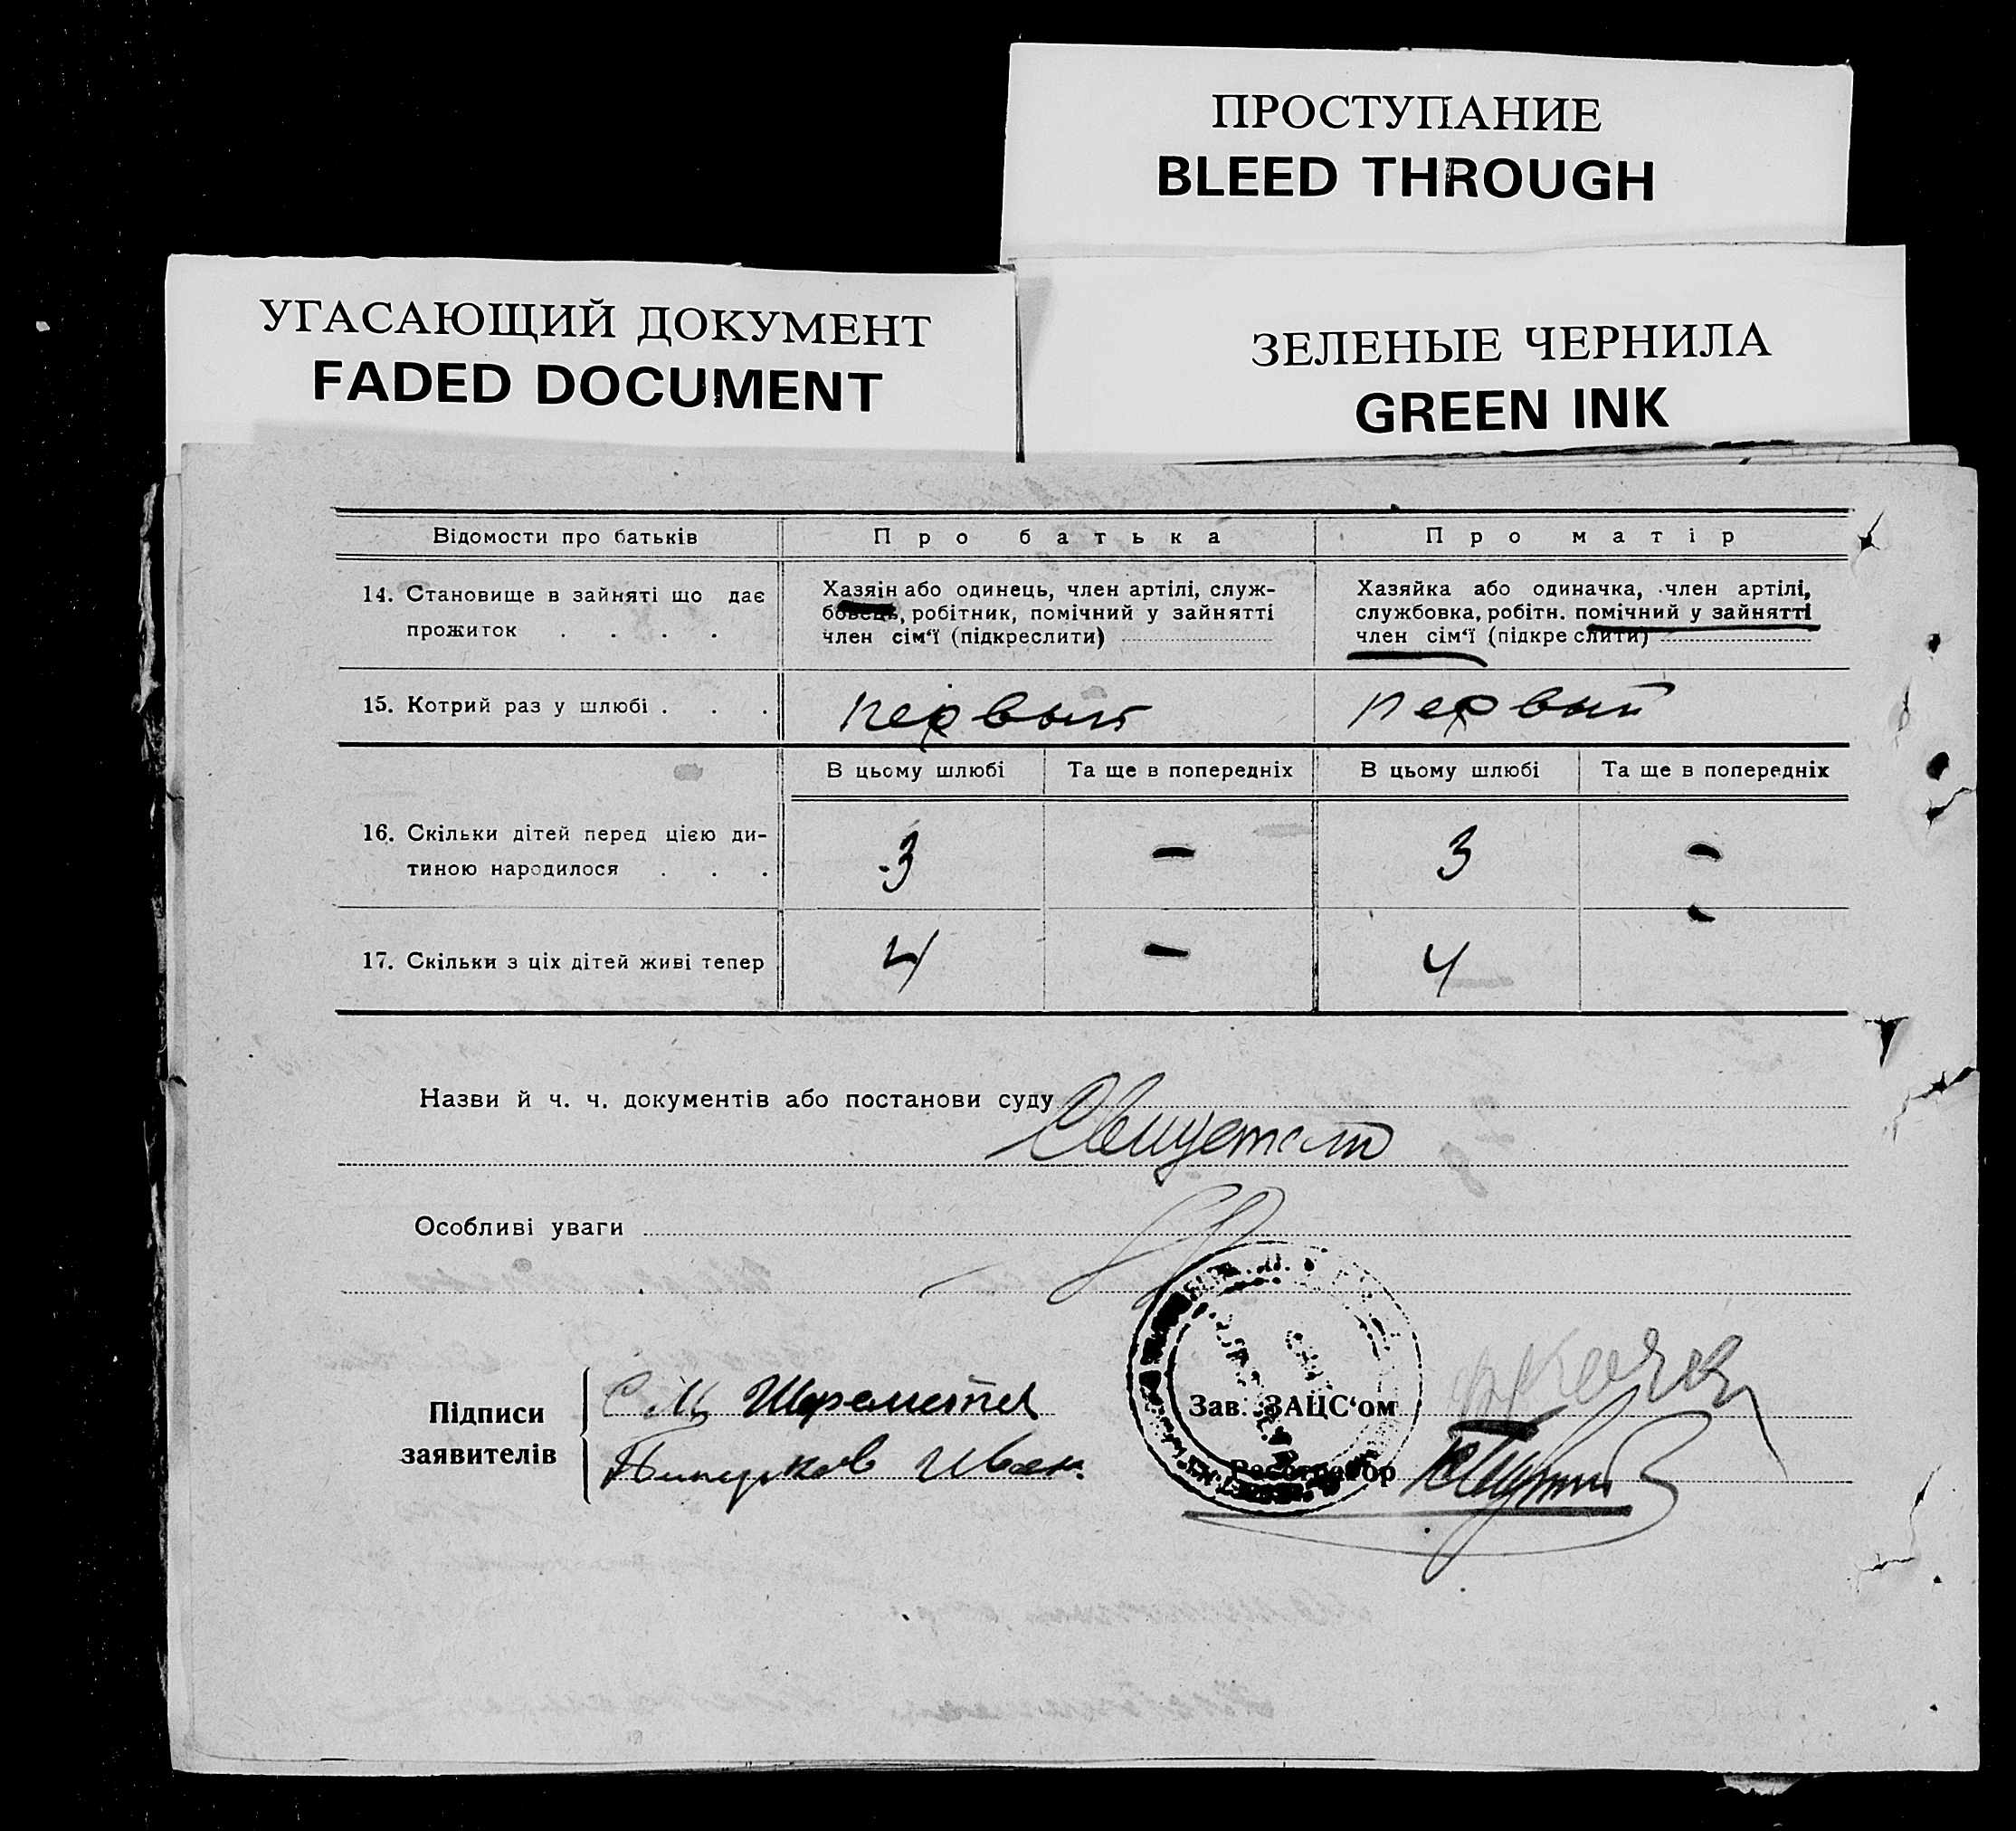 ПРОСТУПАНИЕ
BLEED THROUGH
УГАСАЮЩИЙ ДОКУМЕНТ
FADED DOCUMENT
ЗЕЛЕНЫЕ ЧЕРНИЛА
GREEN INK
Відомости про батьків
Про батька
Про матір
14. Становище в зайняті що дає
прожиток . . . .
Хазяін або одинець, член артілі, служ-
бовець, робітник, помічний у зайнятті
член сім‘ї (підкреслити)
Хазяйка або одиначка, член артілі,
службовка, робітн. помічний у зайнятті
член сім‘ї (підкреслити)
15. Котрий раз у шлюбі . . .
первый
первый
В цьому шлюбі
Та ще в попередніх
В цьому шлюбі
Та ще в попередніх
16. Скільки дітей перед цією ди-
тиною народилося . . .
3
-
3
-
17. Скільки з ціх дітей живі тепер
4
-
4
-
Назви й ч. ч. документів або постанови суду
Особливі уваги
Підписи
заявителів
Иван
Зав. ЗАЦС‘ом
Реєстратор